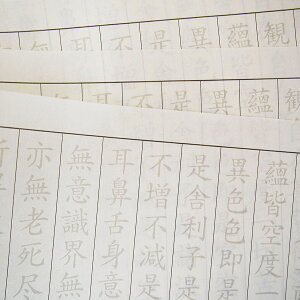 観
蘊
異
是
不
耳
無
蘊
異
是
不
耳
無
蘊皆空度一
異色色即是
是舍利子是
不増不減是
耳鼻舌身意
無意識界無
亦無老死尽